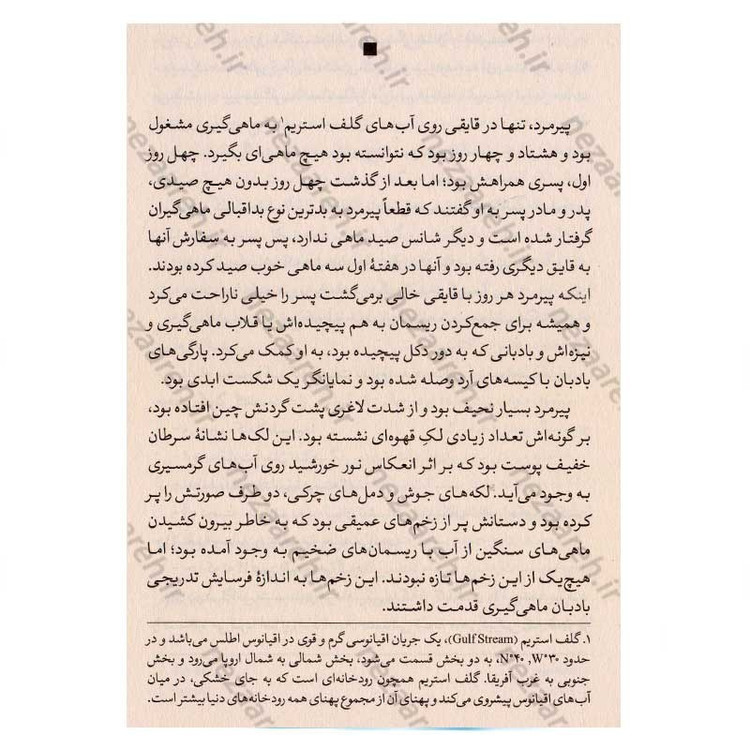 پیرمرد، تنها در قایقی روی آب‌های گلف استریم۱ به ماهی‌گیری مشغول
بود و هشتاد و چهار روز بود که نتوانسته بود هیچ ماهی‌ای بگیرد. چهل روز
اول، پسری همراهش بود؛ اما بعد از گذشت چهل روز بدون هیچ صیدی،
پدر و مادر پسر به او گفتند که قطعاً پیرمرد به بدترین نوع بداقبالی ماهی‌گیران
گرفتار شده است و دیگر شانس صید ماهی ندارد، پس پسر به سفارش آنها
به قایق دیگری رفته بود و آنها در هفتهٔ اول سه ماهی خوب صید کرده بودند.
اینکه پیرمرد هر روز با قایقی خالی برمی‌گشت پسر را خیلی ناراحت می‌کرد
و همیشه برای جمع‌کردن ریسمان به هم پیچیده‌اش یا قلاب ماهی‌گیری و
نیزه‌اش و بادبانی که به دور دکل پیچیده بود، به او کمک می‌کرد. پارگی‌های
بادبان با کیسه‌های آرد وصله شده بود و نمایانگر یک شکست ابدی بود.
پیرمرد بسیار نحیف بود و از شدت لاغری پشت گردنش چین افتاده بود،
بر گونه‌اش تعداد زیادی لکِ قهوه‌ای نشسته بود. این لک‌ها نشانهٔ سرطان
خفیف پوست بود که بر اثر انعکاس نور خورشید روی آب‌های گرمسیری
به وجود می‌آید. لکه‌های جوش و دمل‌های چرکی، دو طرف صورتش را پر
کرده بود و دستانش پر از زخم‌های عمیقی بود که به خاطر بیرون کشیدن
ماهی‌های سنگین از آب با ریسمان‌های ضخیم به وجود آمده بود؛ اما
هیچ‌یک از این زخم‌ها تازه نبودند. این زخم‌ها به اندازهٔ فرسایش تدریجی
بادبان ماهی‌گیری قدمت داشتند.
۱. گلف استریم (Gulf Stream)، یک جریان اقیانوسی گرم و قوی در اقیانوس اطلس می‌باشد و در
حدود N°۴۰ ,W°۳۰، به دو بخش قسمت می‌شود، بخش شمالی به شمال اروپا می‌رود و بخش
جنوبی به غرب آفریقا. گلف استریم همچون رودخانه‌ای است که به جای خشکی، در میان
آب‌های اقیانوس پیشروی می‌کند و پهنای آن از مجموع پهنای همه رودخانه‌های دنیا بیشتر است.
nezaareh.ir